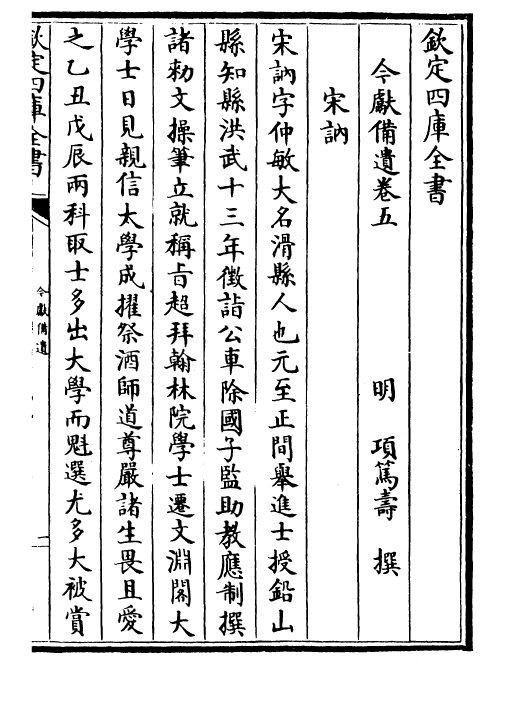 欽定四庫全書
今獻備遺卷五
明 項篤壽 撰
宋訥
宋訥字仲敏大名滑縣人也元至正間舉進士授鉛山
縣知縣洪武十三年徵詣公車除國子監助教應制撰
諸勅文操筆立就稱㫖超拜翰林院學士遷文淵閣大
學士日見親信太學成擢祭酒師道尊嚴諸生畏且愛
之乙丑戊辰兩科取士多出大學而魁選尤多大被賞
欽定四庫全書
今獻備遺